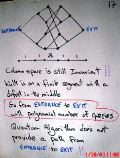 17
ENTRANCE EXIT
Column space is still Invariant !!
Walk is on a finite segment with a
defect in the middle
Go from ENTRANCE to EXIT
with polynomial number of queries
Quantum Algorithm does not
provide a path from
ENTRANCE to EXIT !!